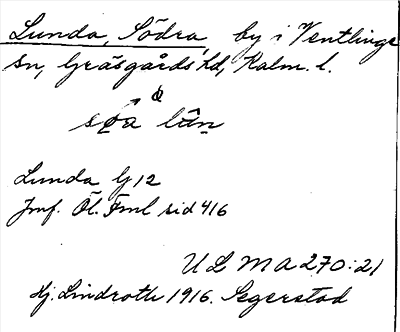 Lunda, Södra, by i Ventlinge
sn, Gräsgårds hd, Kalm. l.
Lunda G 12
Jmf. Öl. Fml sid 416
ULMA 270:21
Hj. Lindroth 1916. Segerstad